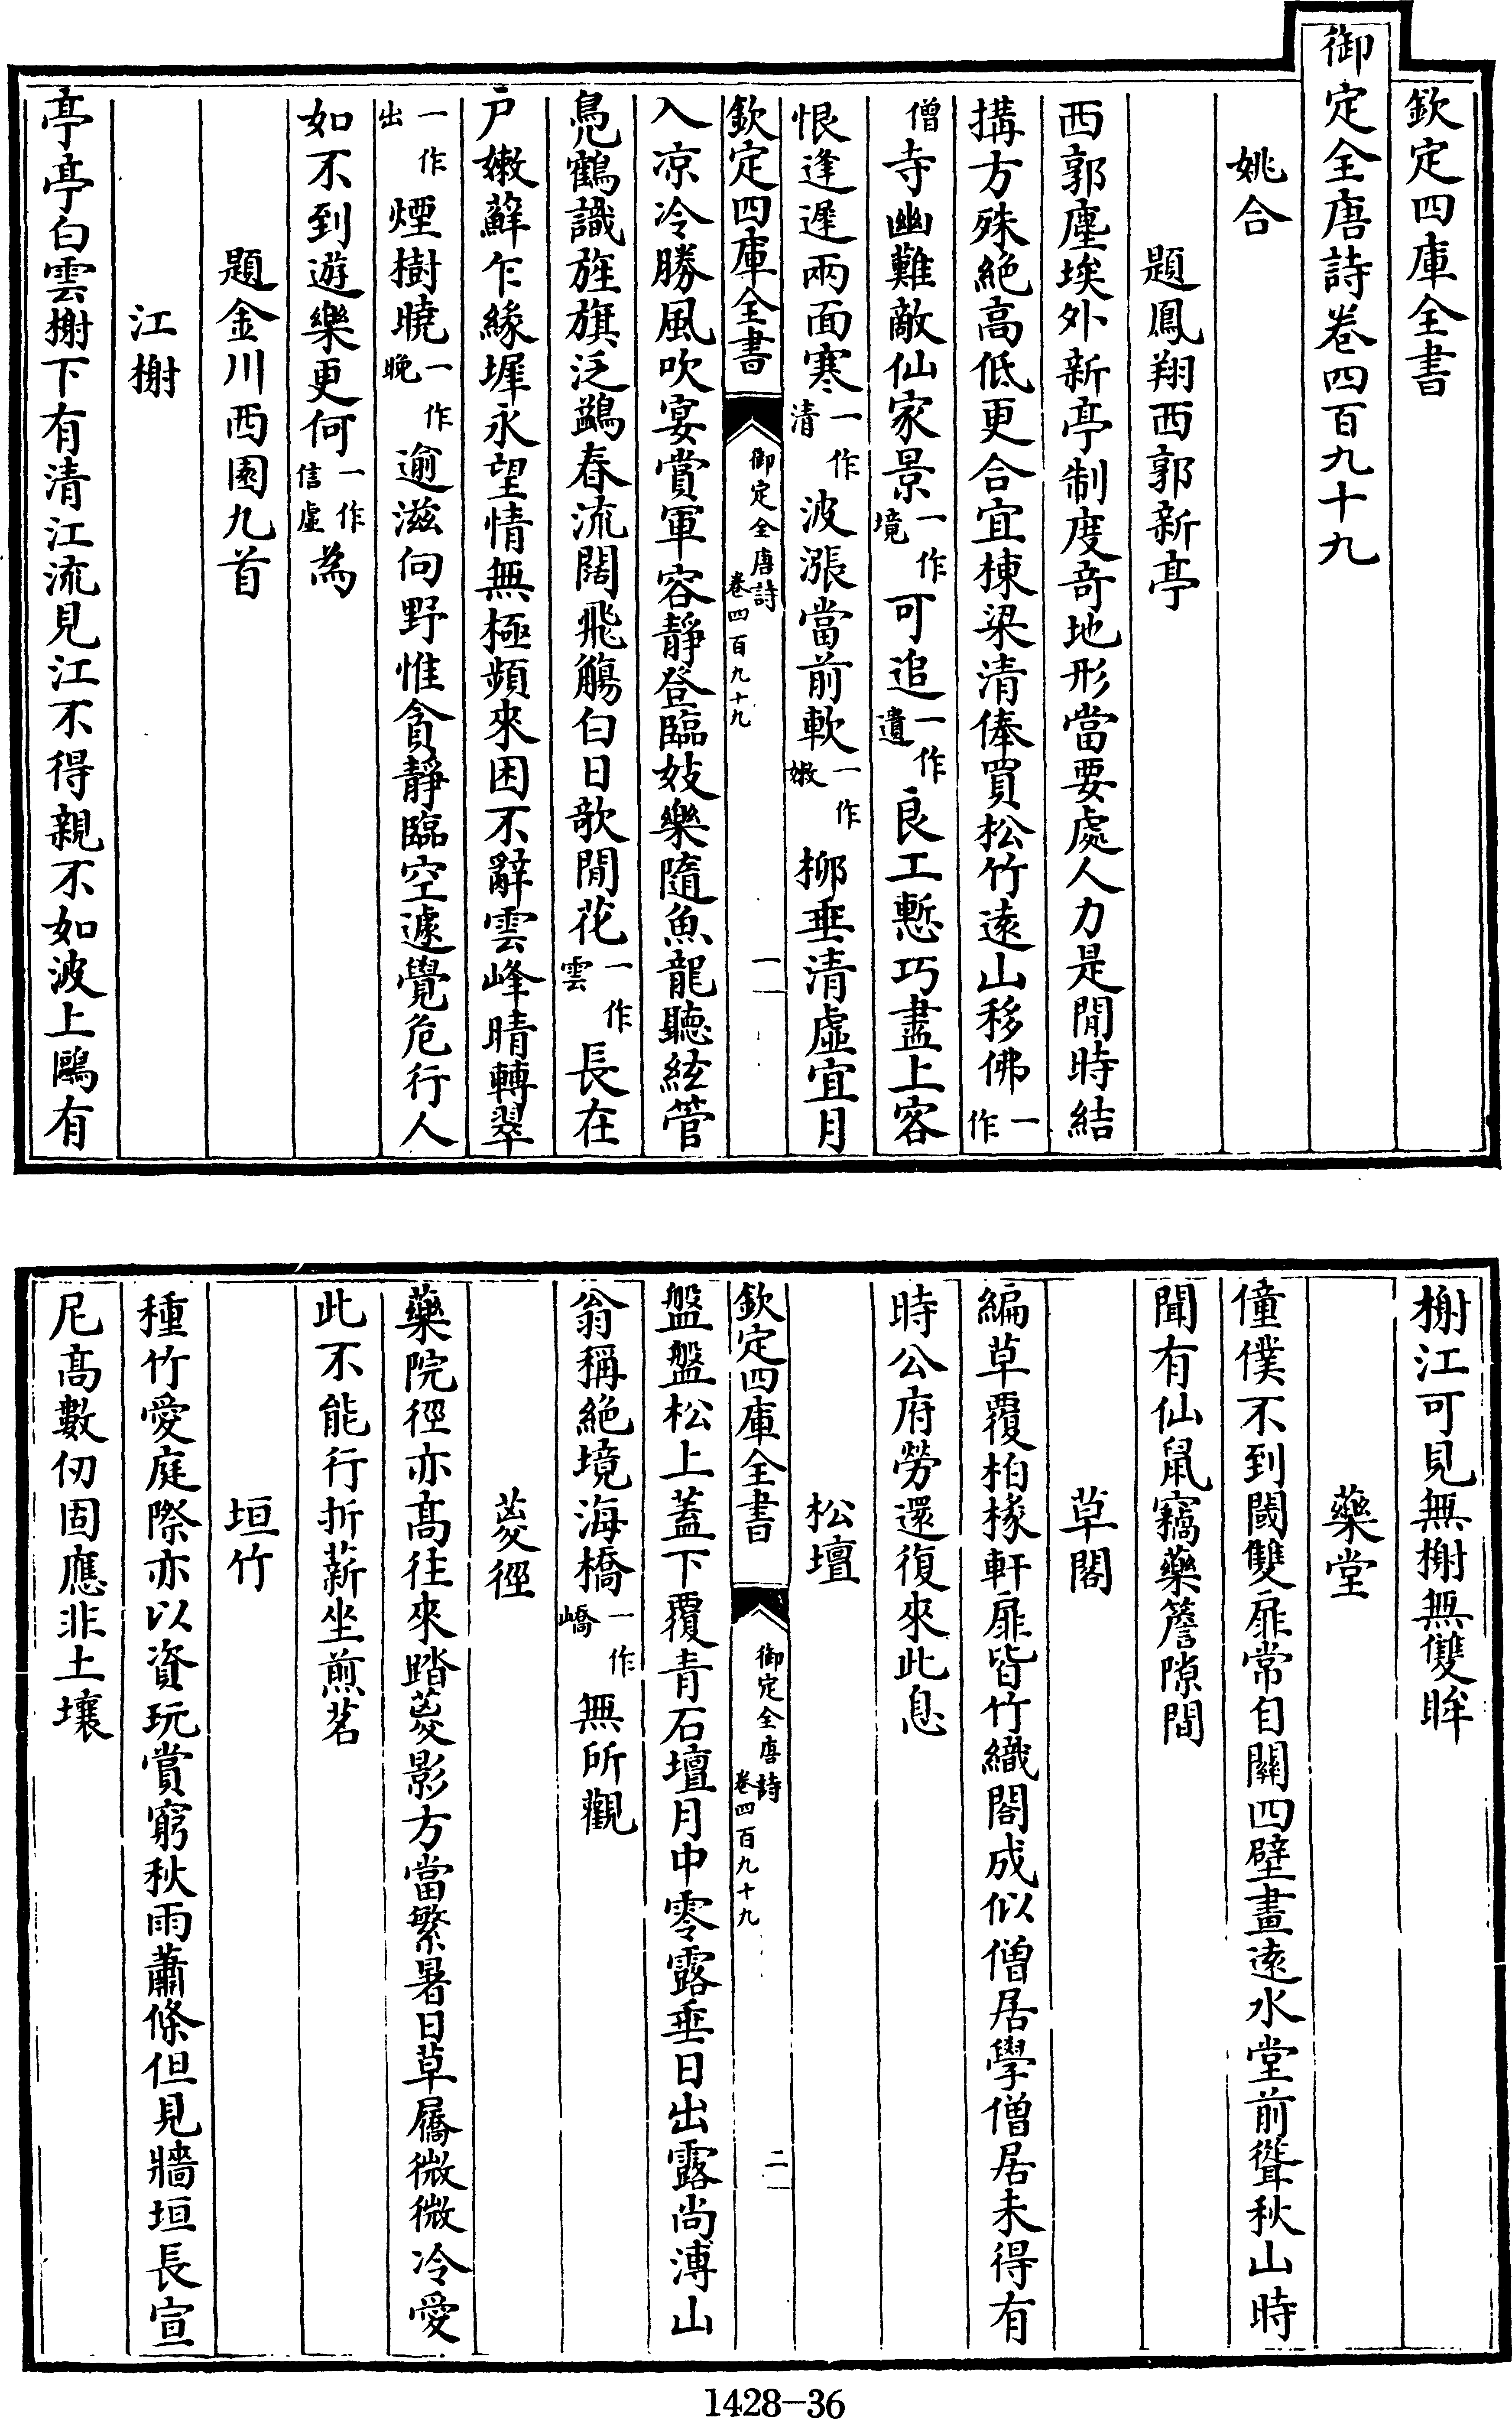 欽定四庫全書
御定全唐詩卷四百九十九
姚合
題鳳翔西郭新亭
西郭塵埃外新亭制度奇地形當要處人力是閒時結
搆方殊絶高低更合宜棟梁清俸買松竹遠山移佛一作
僧寺幽難敵仙家景一作境可追一作遺良工慙巧盡上客
恨逢遲兩面寒一作清波漲當前軟一作嫩柳垂清虛宜月
欽定四庫全書
御定全唐詩
卷四百九十九
一
入凉冷勝風吹宴賞軍容靜登臨妓樂隨魚龍聽絃管
鳧鶴識旌旗泛鷁春流闊飛觴白日歌閒花一作雲長在
戶嫩蘚乍緣墀永望情無極頻來困不辭雲峰晴轉翠
一作出煙樹曉一作晚逾滋向野惟貪靜臨空遽覺危行人
如不到遊樂更何一作信虛為
題金川西園九首
江榭
亭亭白雲榭下有清江流見江不得親不如波上鷗有
榭江可見無榭無雙眸
藥堂
僮僕不到閾雙扉常自關四壁畫遠水堂前聳秋山時
聞有仙鼠竊藥簷隙間
草閣
編草覆柏椽軒扉皆竹織閣成似僧居學僧居未得有
時公府勞還復來此息
松壇
欽定四庫全書
御定全唐詩
卷四百九十九
二
盤盤松上蓋下覆青石壇月中零露垂日出露尚漙山
翁稱絶境海橋一作嶠無所觀
菱徑
藥院徑亦高往來踏菱影方當繁暑日草屩微微冷愛
此不能行折薪坐煎茗
垣竹
種竹愛庭際亦以資玩賞窮秋雨蕭條但見牆垣長宣
尼高數仞固應非土壤
1428-36